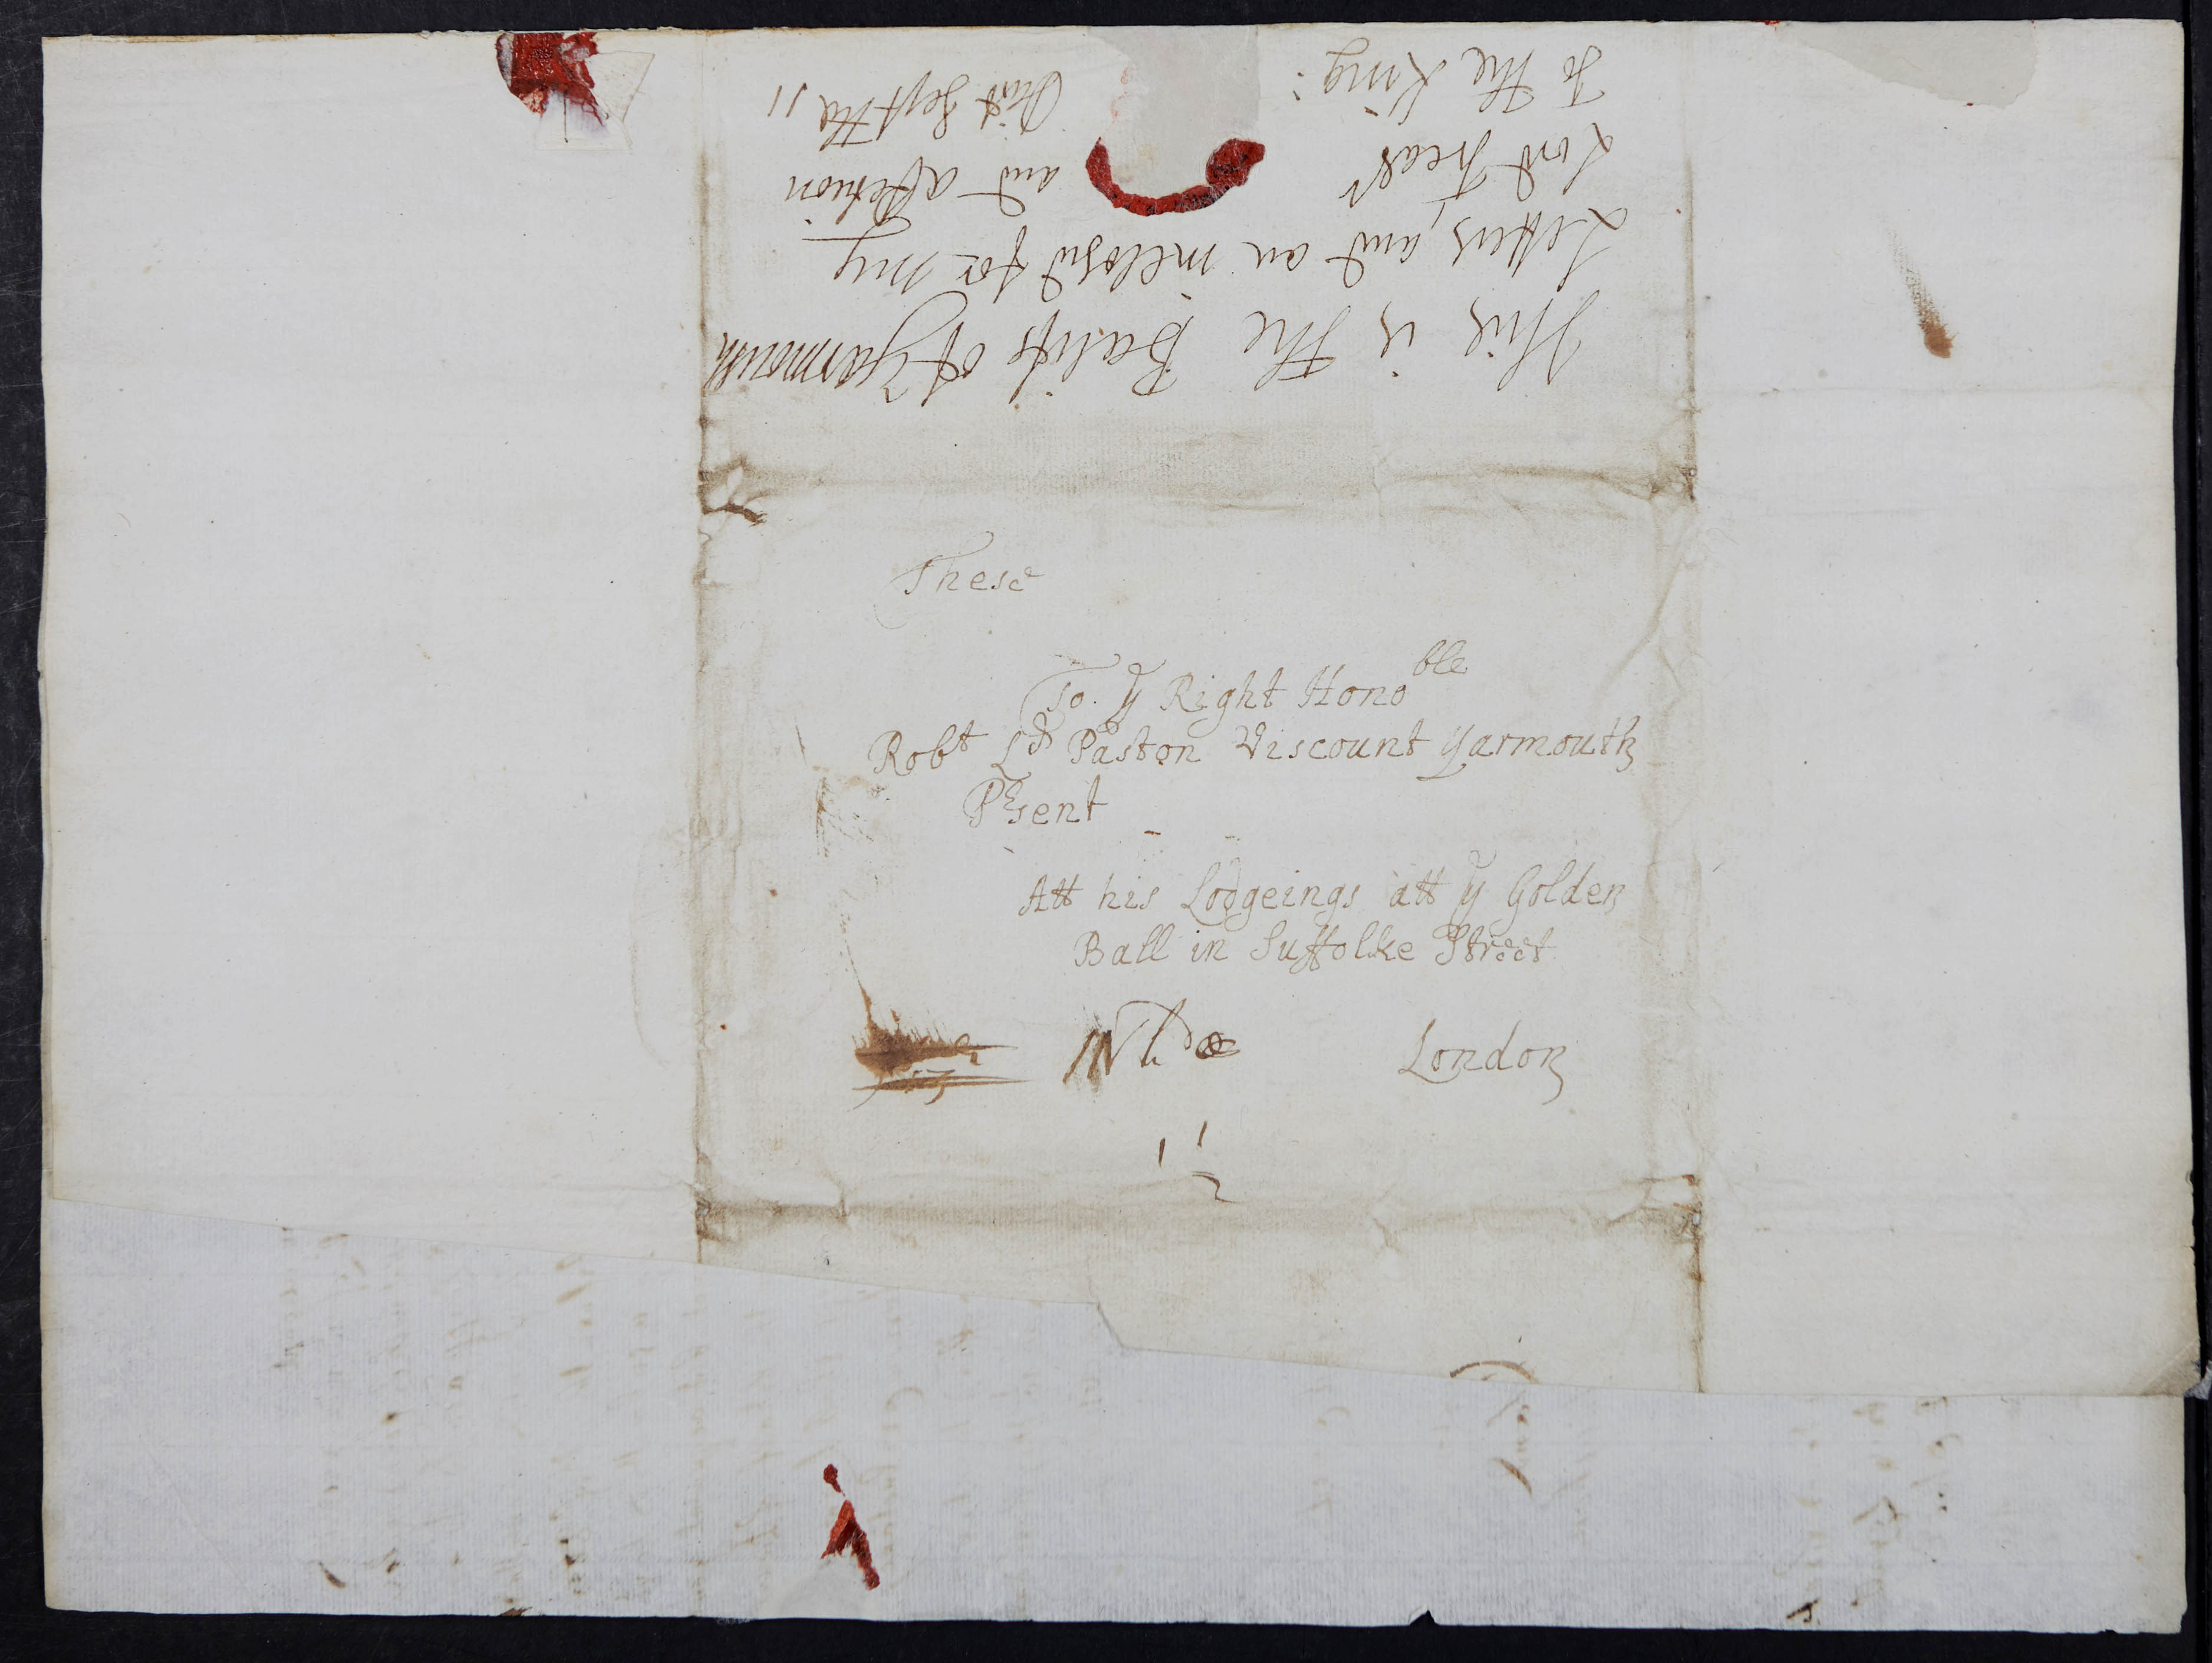 This is the Balifs of Yarmouth
Letters, and an inclosd for my
Lord Treasr and a Petition
To the King: Sept the 11
These
To. ye Right Honoble
Robt Ld Paston Viscount Yarmouth
Prsent
Att his Lodgeings att ye Golden
Ball in Suffolke Street
London
1 1/2